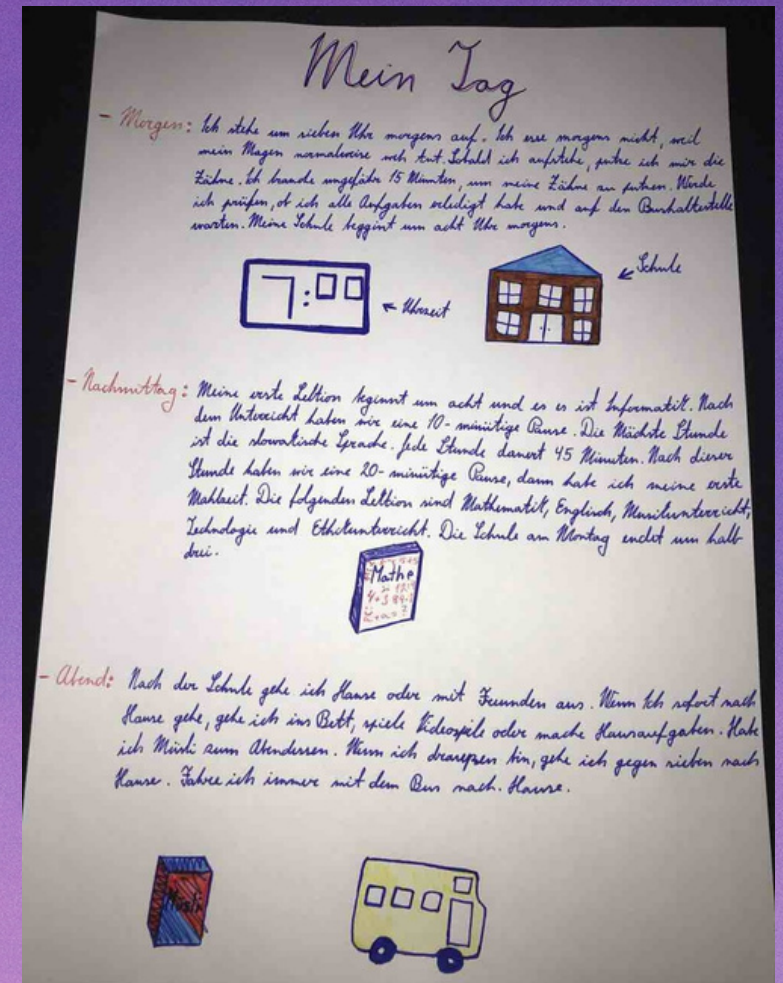 Mein Tag
- Morgen: Ich stehe um sieben Uhr morgens auf. Ich esse morgens nicht, weil
mein Magen normalweise weh tut. Sobald ich aufstehe, putze ich mir die
Zähne. Ich brauche ungefähr 15 Minuten, um meine Zähne zu putzen. Werde
ich prüfen, ob ich alle Aufgaben erledigt habe und auf den Bushaltestelle
warten. Meine Schule beggint um acht Uhr morgens.
7:00
← Uhrzeit
← Schule
- Nachmittag: Meine erste Lektion beginnt um acht und es es ist Informatik. Nach
dem Unterricht haben wir eine 10-minütige Pause. Die Nächste Stunde
ist die slowakische Sprache. Jede Stunde dauert 45 Minuten. Nach dieser
Stunde haben wir eine 20-minütige Pause, dann habe ich meine erste
Mahlzeit. Die folgenden Lektion sind Mathematik, Englisch, Musikunterricht,
Technologie und Ethikunterricht. Die Schule am Montag endet um halb
drei.
Mathe
- Abend: Nach der Schule gehe ich Hause oder mit Freunden aus. Wenn Ich sofort nach
Hause gehe, gehe ich ins Bett, spiele Videospile oder mache Hausaufgaben. Habe
ich Müsli zum Abendessen. Wenn ich bin, gehe ich gegen sieben nach
Hause. Fahre ich immer mit dem Bus nach. Hause.
Müsli